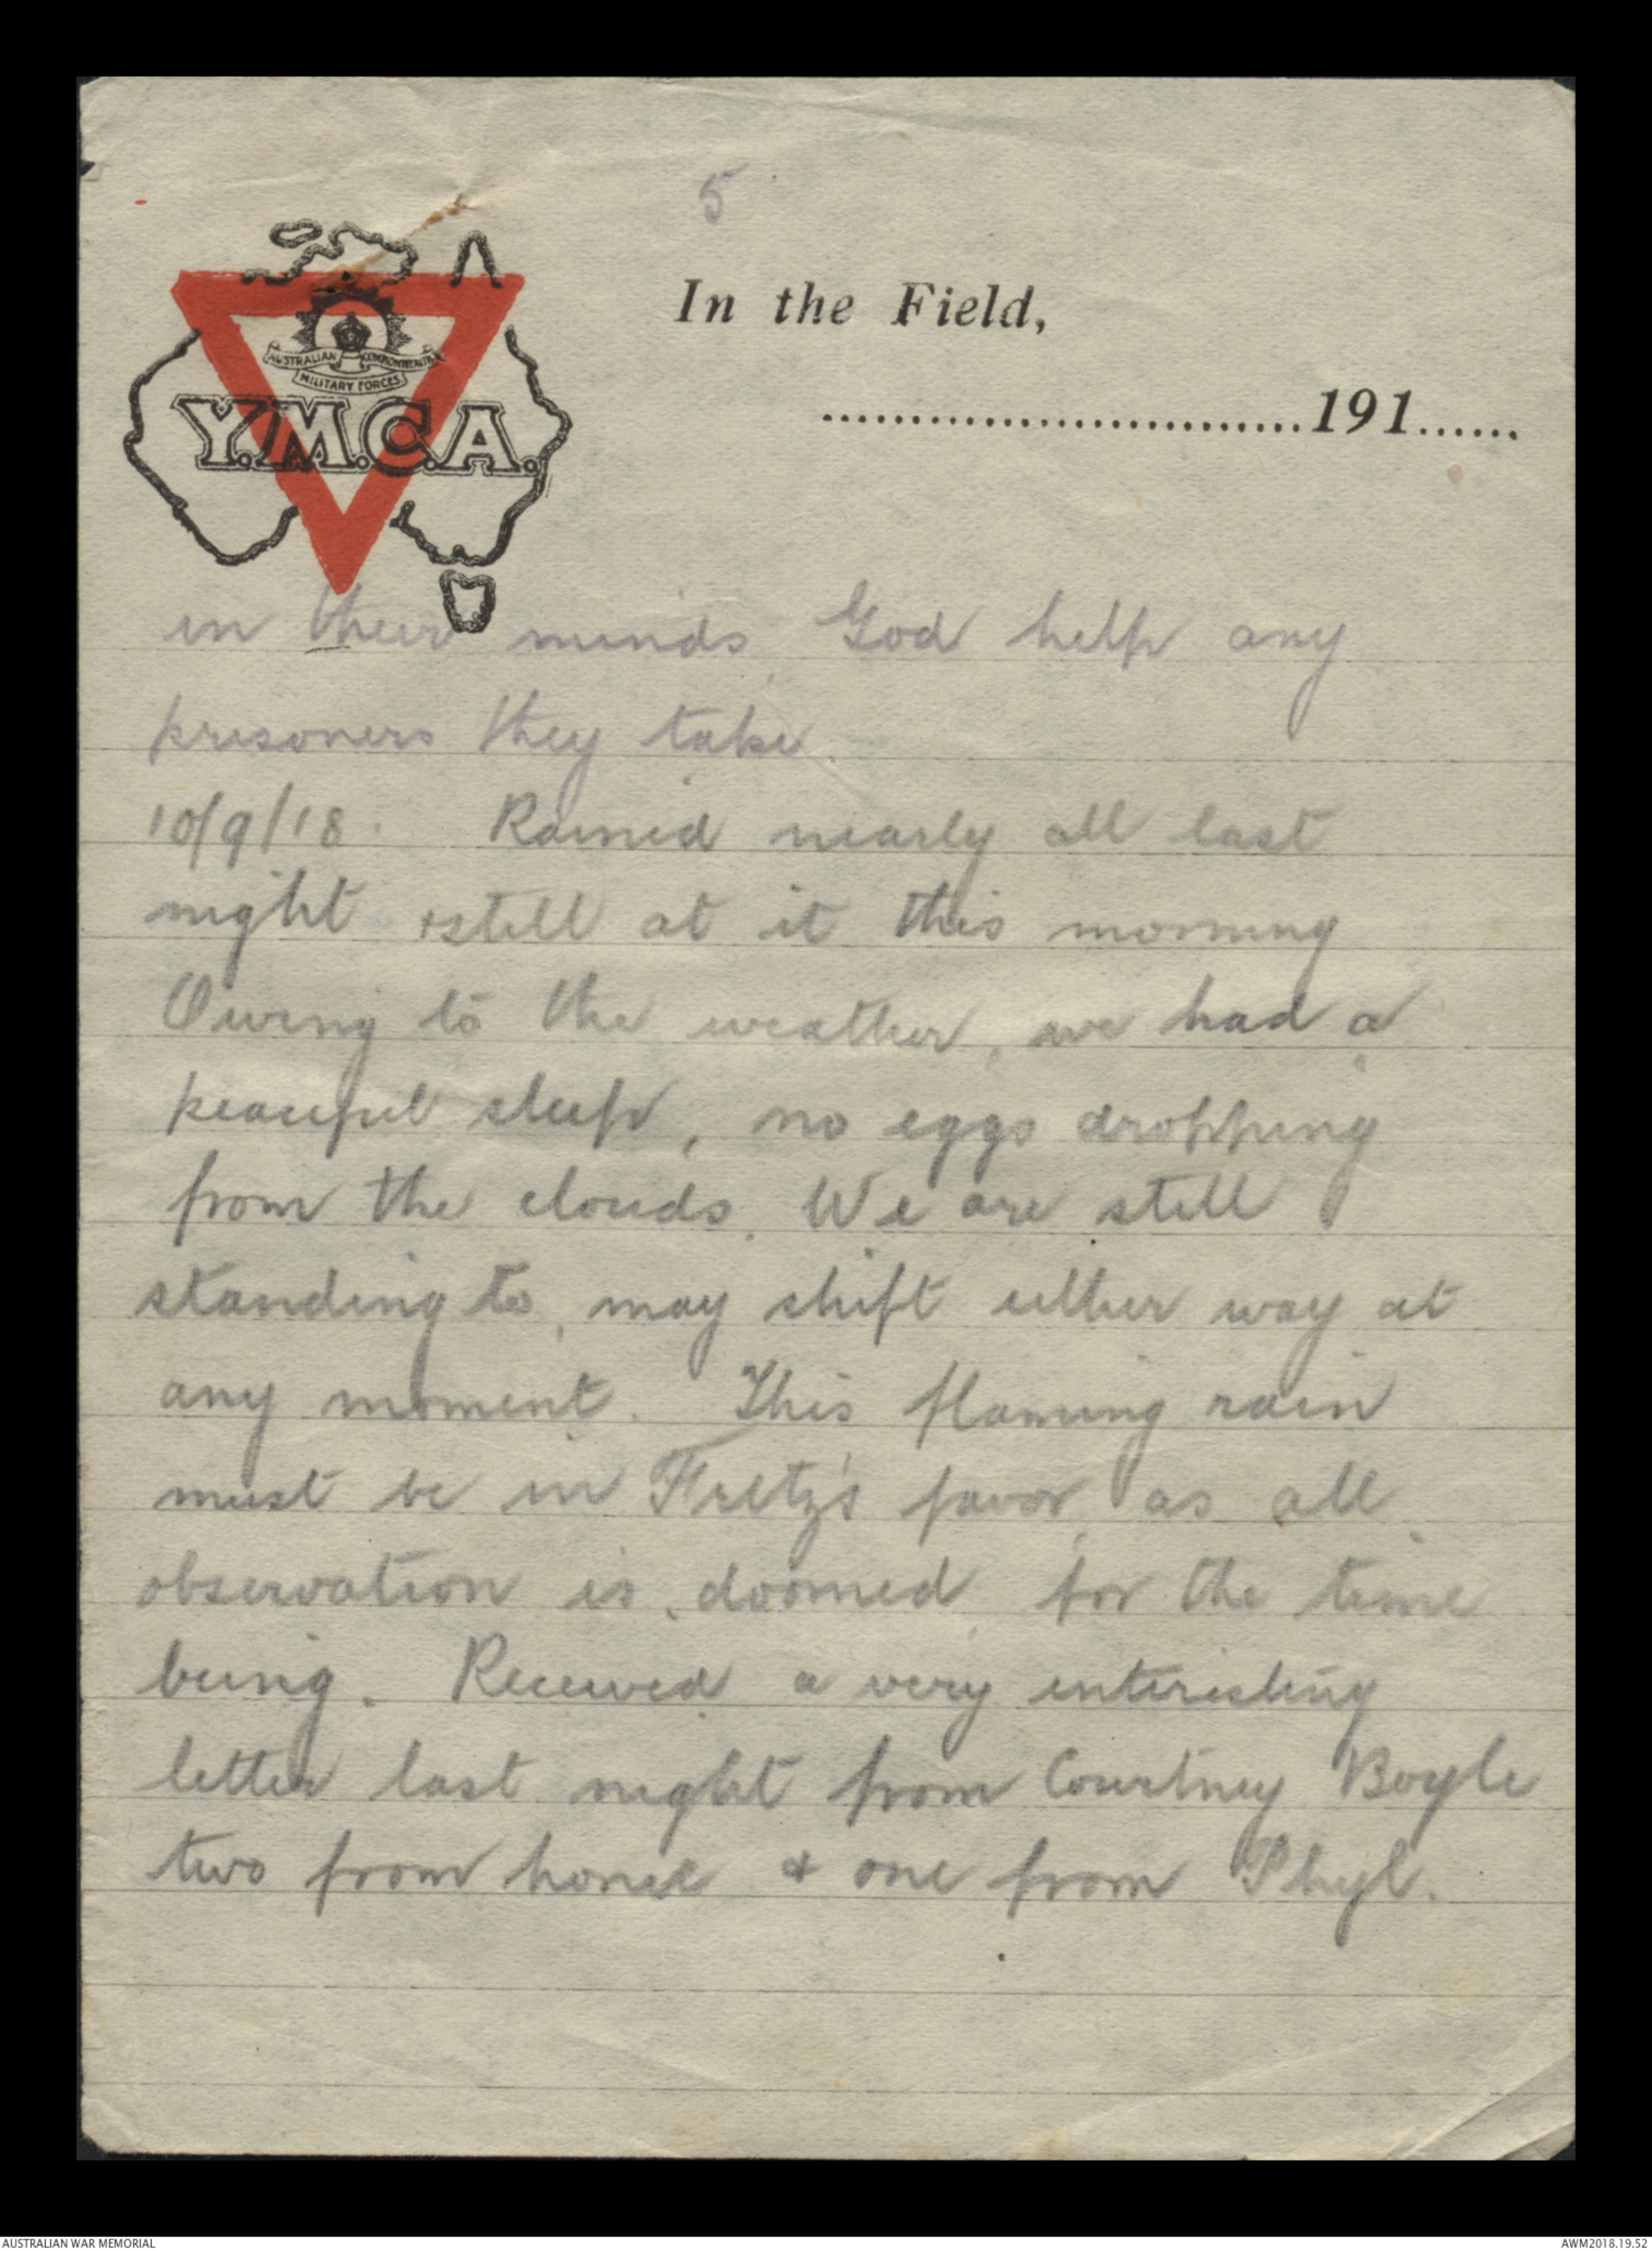 5
In the Field,
AUSTRALIAN COMMONWEALTH
MILITARY FORCES
Y.M.C.A.
..............................191......
in their minds, God help any
prisoners they take.
10/9/18. Rained nearly all last
night + still at it this morning
Owing to the weather, we had a
peaceful sleep, no eggs dropping
from the clouds. We are still
standing to, may shift either way at
any moment. This flaming rain
must be in Fritz's favor, as all
observation is doomed for the time
being. Received a very interesting
letter last night from Courtney Boyle
two from home & one from Phyl.
AUSTRALIAN WAR MEMORIAL
AWM2018.19.52